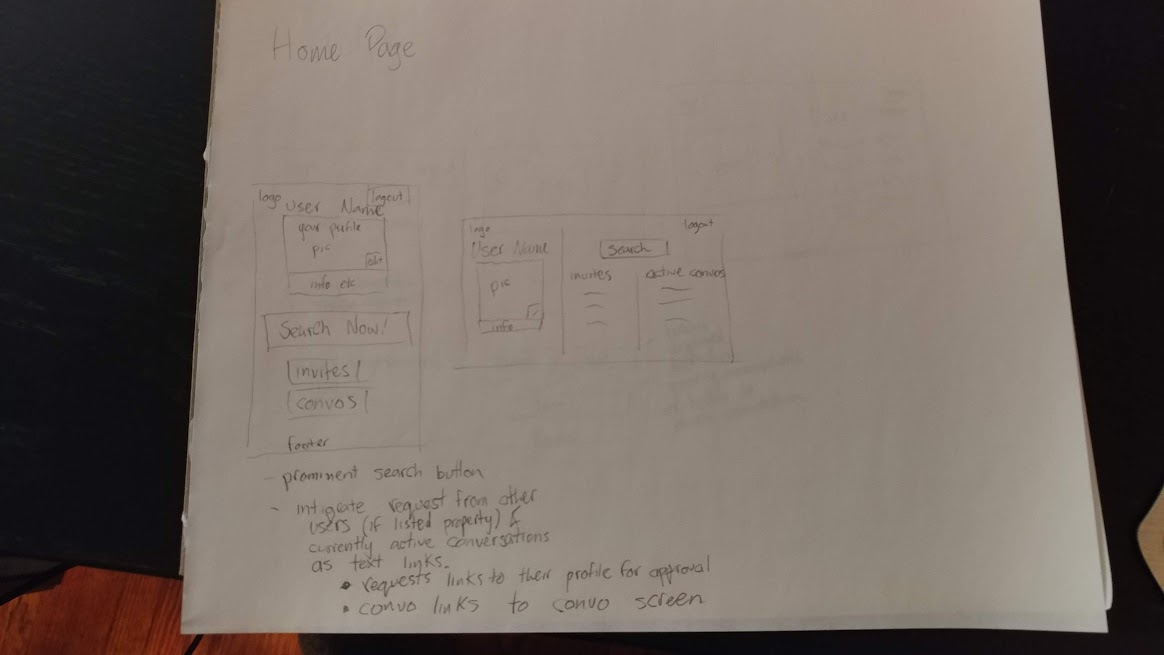 Home Page
logo
logout
User Name
your profile
pic
edit
info etc
Search Now!
invites
convos
footer
logo
logout
User Name
search
pic
info
invites
active convos
- prominent search button
- intigrate request from other
users (if listed property) &
currently active conversations
as text links.
• requests links to their profile for approval
• convo links to convo screen